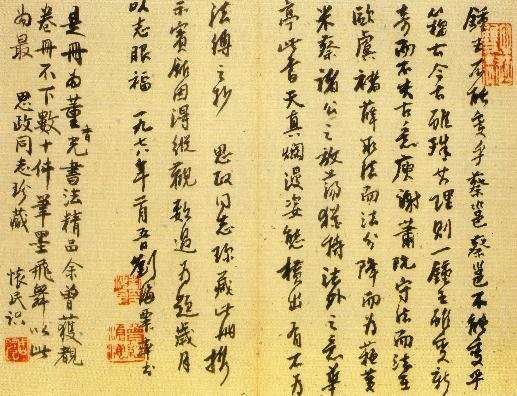 鍾王不能變乎蔡邕蔡邕不能變乎
籀古今古雖殊其理則一鍾王雖變新
奇而不失古意庾謝蕭阮守法而法在
歐虞褚薛取法而法分降而為蘇黃
米蔡諸公之放蕩猶持法外之意華
亭此書天真爛漫姿態橫出有不為
法縛之妙 思政同志珍藏此冊攜
示賓館因得縱觀數過為題歲月
以志眼福 一九七八年一月五日劉海粟
是冊為董香光書法精品余曾獲觀
卷冊不下數十件筆墨飛舞以此
為最 思政同志珍藏 懷民識